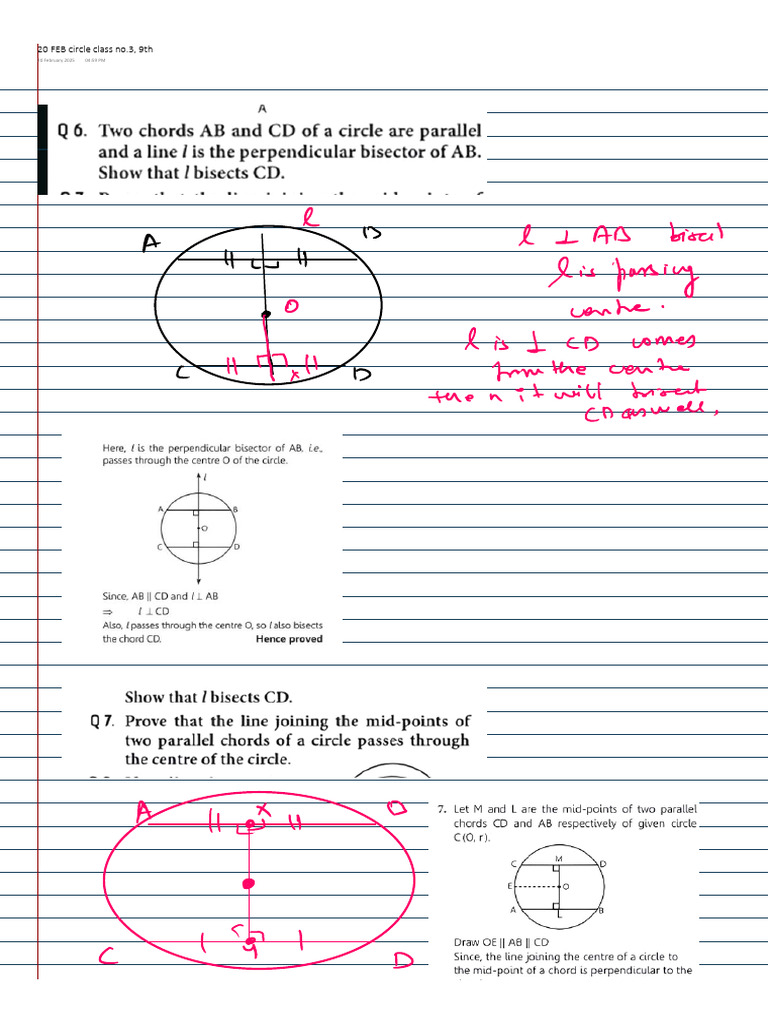 20 FEB circle class no.3, 9th
February 2025 04:59 PM
A
Q 6. Two chords AB and CD of a circle are parallel
and a line l is the perpendicular bisector of AB.
Show that l bisects CD.
l
A B
O
C x D
l ⊥ AB bisect
l is passing
centre.
l is ⊥ CD comes
from the centre
then it will bisect
CD as well,
Here, l is the perpendicular bisector of AB, i.e.,
passes through the centre O of the circle.
l
A B
O
C D
Since, AB || CD and l ⊥ AB
⇒ l ⊥ CD
Also, l passes through the centre O, so l also bisects
the chord CD. Hence proved
Show that l bisects CD.
Q 7. Prove that the line joining the mid-points of
two parallel chords of a circle passes through
the centre of the circle.
A x
C y D
7. Let M and L are the mid-points of two parallel
chords CD and AB respectively of given circle
C(O, r).
M
C D
E O
A B
L
Draw OE || AB || CD
Since, the line joining the centre of a circle to
the mid-point of a chord is perpendicular to the